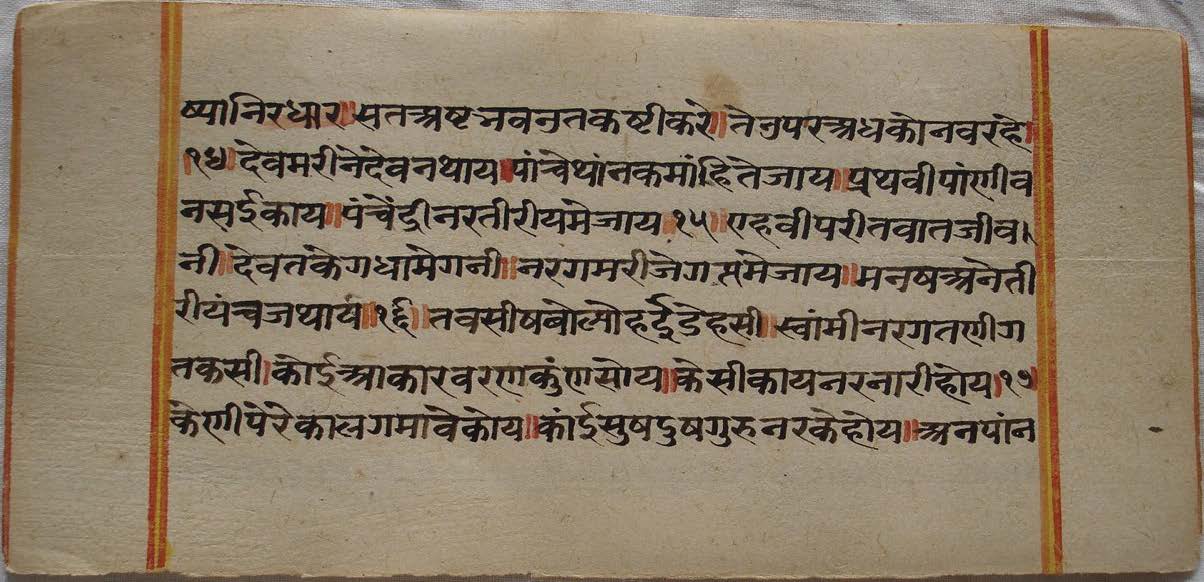 ष्यानिरधार॥सतअष्टभवनुतकष्टीकरे॥तेउपरअधकोनवरहे॥
१४॥देवमरीनेदेवनथाय॥पांचेथांनकमांहितेजाय॥प्रथवीपांणीव
नसईकाय॥पंचेंद्रीनरतीरीयमेजाय॥१५॥एहवीपरीतवातजीव।
नी॥देवतकेगधामेगनी॥नरगमरीजेगतमेजाय॥मनषअनेती
रीयंचजथाय॥१६॥तवसीषबोल्योहईडेहसी॥स्वांमीनरगतणीग
तकसी॥कोईआकारवरणकुंणसोय॥केसीकायनरनारीहोय॥१७
केणीपेरेकालगमावेकोय॥कांईसुषदुषगुरुनरकेहोय॥अनपांन